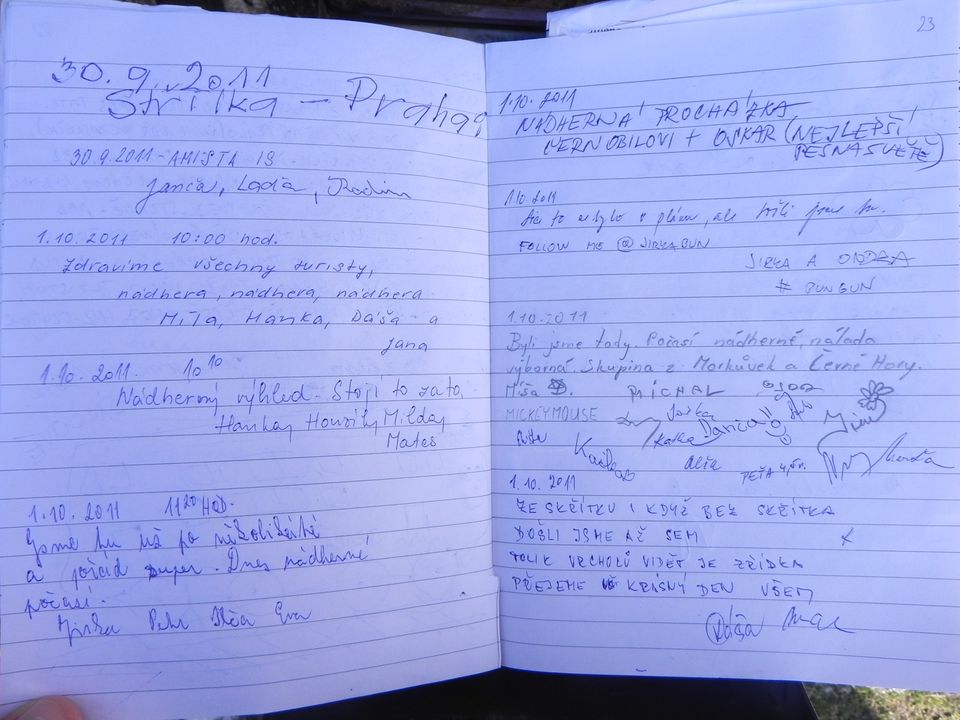 30.9.2011
Střílka - Praha
30.9.2011 - AMISTA 19
Janča, Laďa, Radim
1.10.2011 10:00 hod.
Zdravíme všechny turisty,
nádhera, nádhera, nádhera
Míla, Hanka, Dáša a
Jana
1.10.2011. 10 10
Nádherný výhled. Stojí to za to,
Hanka, Milda,
Mates
1.10.2011 11 20 HOD.
Jsme tu už po několikáté
a pořád super. Dnes nádherné
počasí.
Jirka Petr Eva
23
1.10.2011
NÁDHERNÁ PROCHÁZKA
ČERNOBILOVI + OSKAR (NEJLEPŠÍ
PES NA SVĚTĚ)
1.10.2011
to nebylo v plánu, ale jsme tu.
FOLLOW ME @JIRKABUN
JIRKA A ONDRA
# BUNBUN
1.10.2011
Byli jsme tady. Počasí nádherné, nálada
výborná. Skupina z Morkůvek a Černé Hory.
Míša MICHAL
MICKEY MOUSE Danča!!
Katka
PEŤA
1.10.2011
ZE SKŘÍTKU I KDYŽ BEZ SKŘÍTKA
DOŠLI JSME AŽ SEM
TOLIK VRCHOLŮ VIDĚT JE ZŘÍDKA
PŘEJEME KRÁSNÝ DEN VŠEM
Dáša